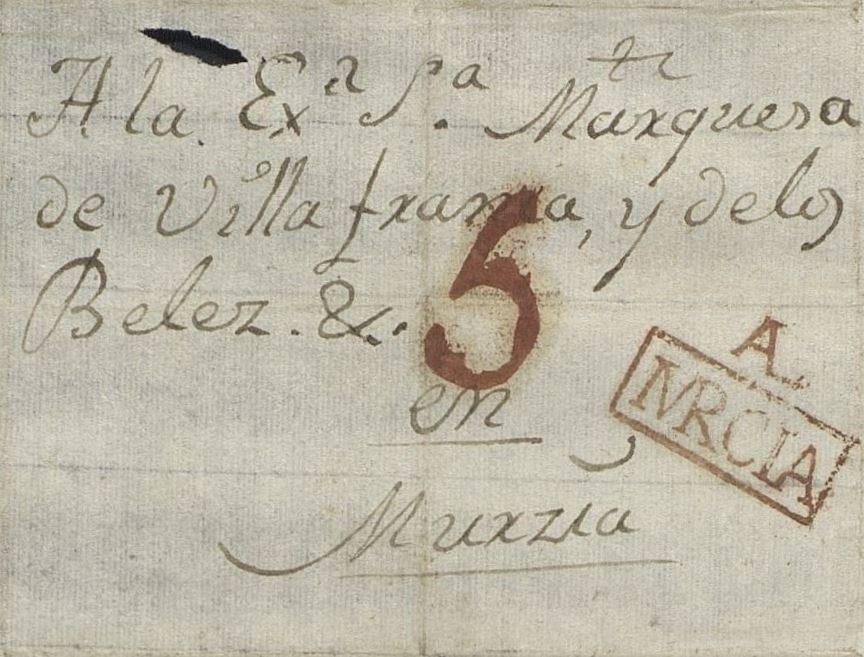 A la. Exª Sª. Marquesa
de Villafranca, y delos
Belez. &.
5
en
Murzia
A.
MRCIA